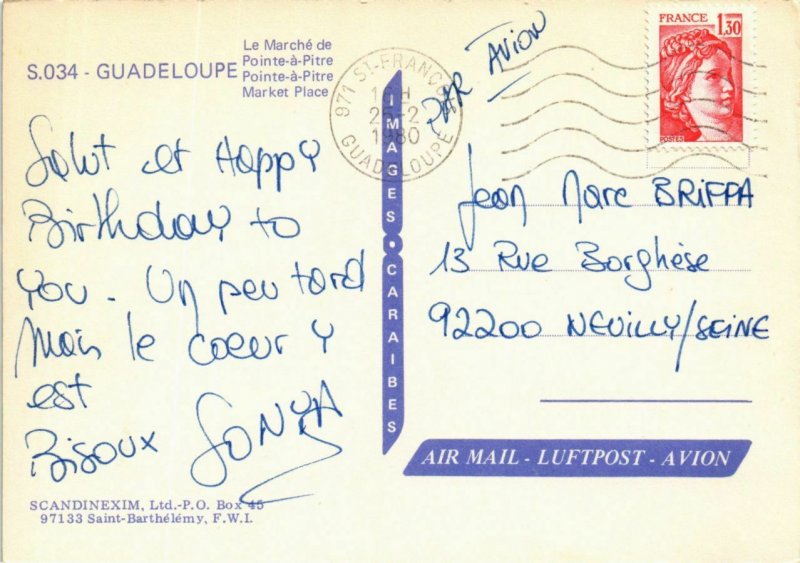 S.034 - GUADELOUPE
Le Marché de
Pointe-à-Pitre
Pointe-à-Pitre
Market Place
Salut et Happy
Birthday to
You. Un peu tard
Mais le coeur y
est
Bisoux SONYA
SCANDINEXIM, Ltd.-P.O. Box 45
97133 Saint-Barthélémy, F.W.I.
IMAGES CARAIBES
971 ST-FRANÇOIS
16 H
25-2
1980
GUADELOUPE
PAR AVION
FRANCE
1,30
POSTES
Jean Marc BRIFFA
13 Rue Borghèse
92200 NEUILLY/SEINE
AIR MAIL - LUFTPOST - AVION